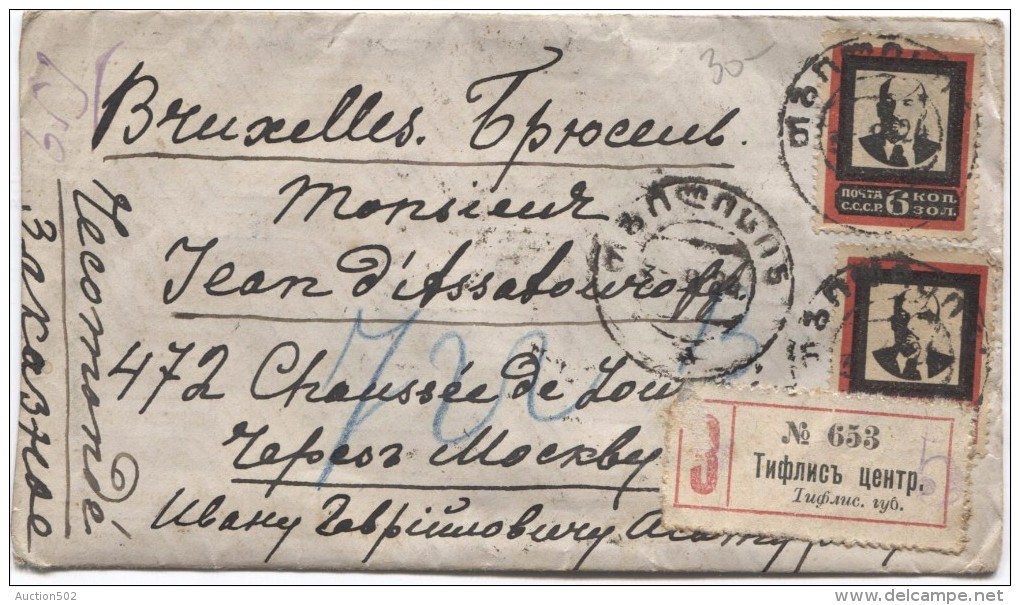 30-
Bruxelles. Брюсель.
Monsieur
Jean d'Assatouroff
472 Chaussée de
Через Москву
Ивану Гаврійловичу
Recomandé
Заказное
ПОЧТА
С.С.С.Р.
6
КОП.
ЗОЛ.
ტფილისი
З
№ 653
Тифлисъ центр.
Тифлис. губ.
Auction502
www.delcampe.net